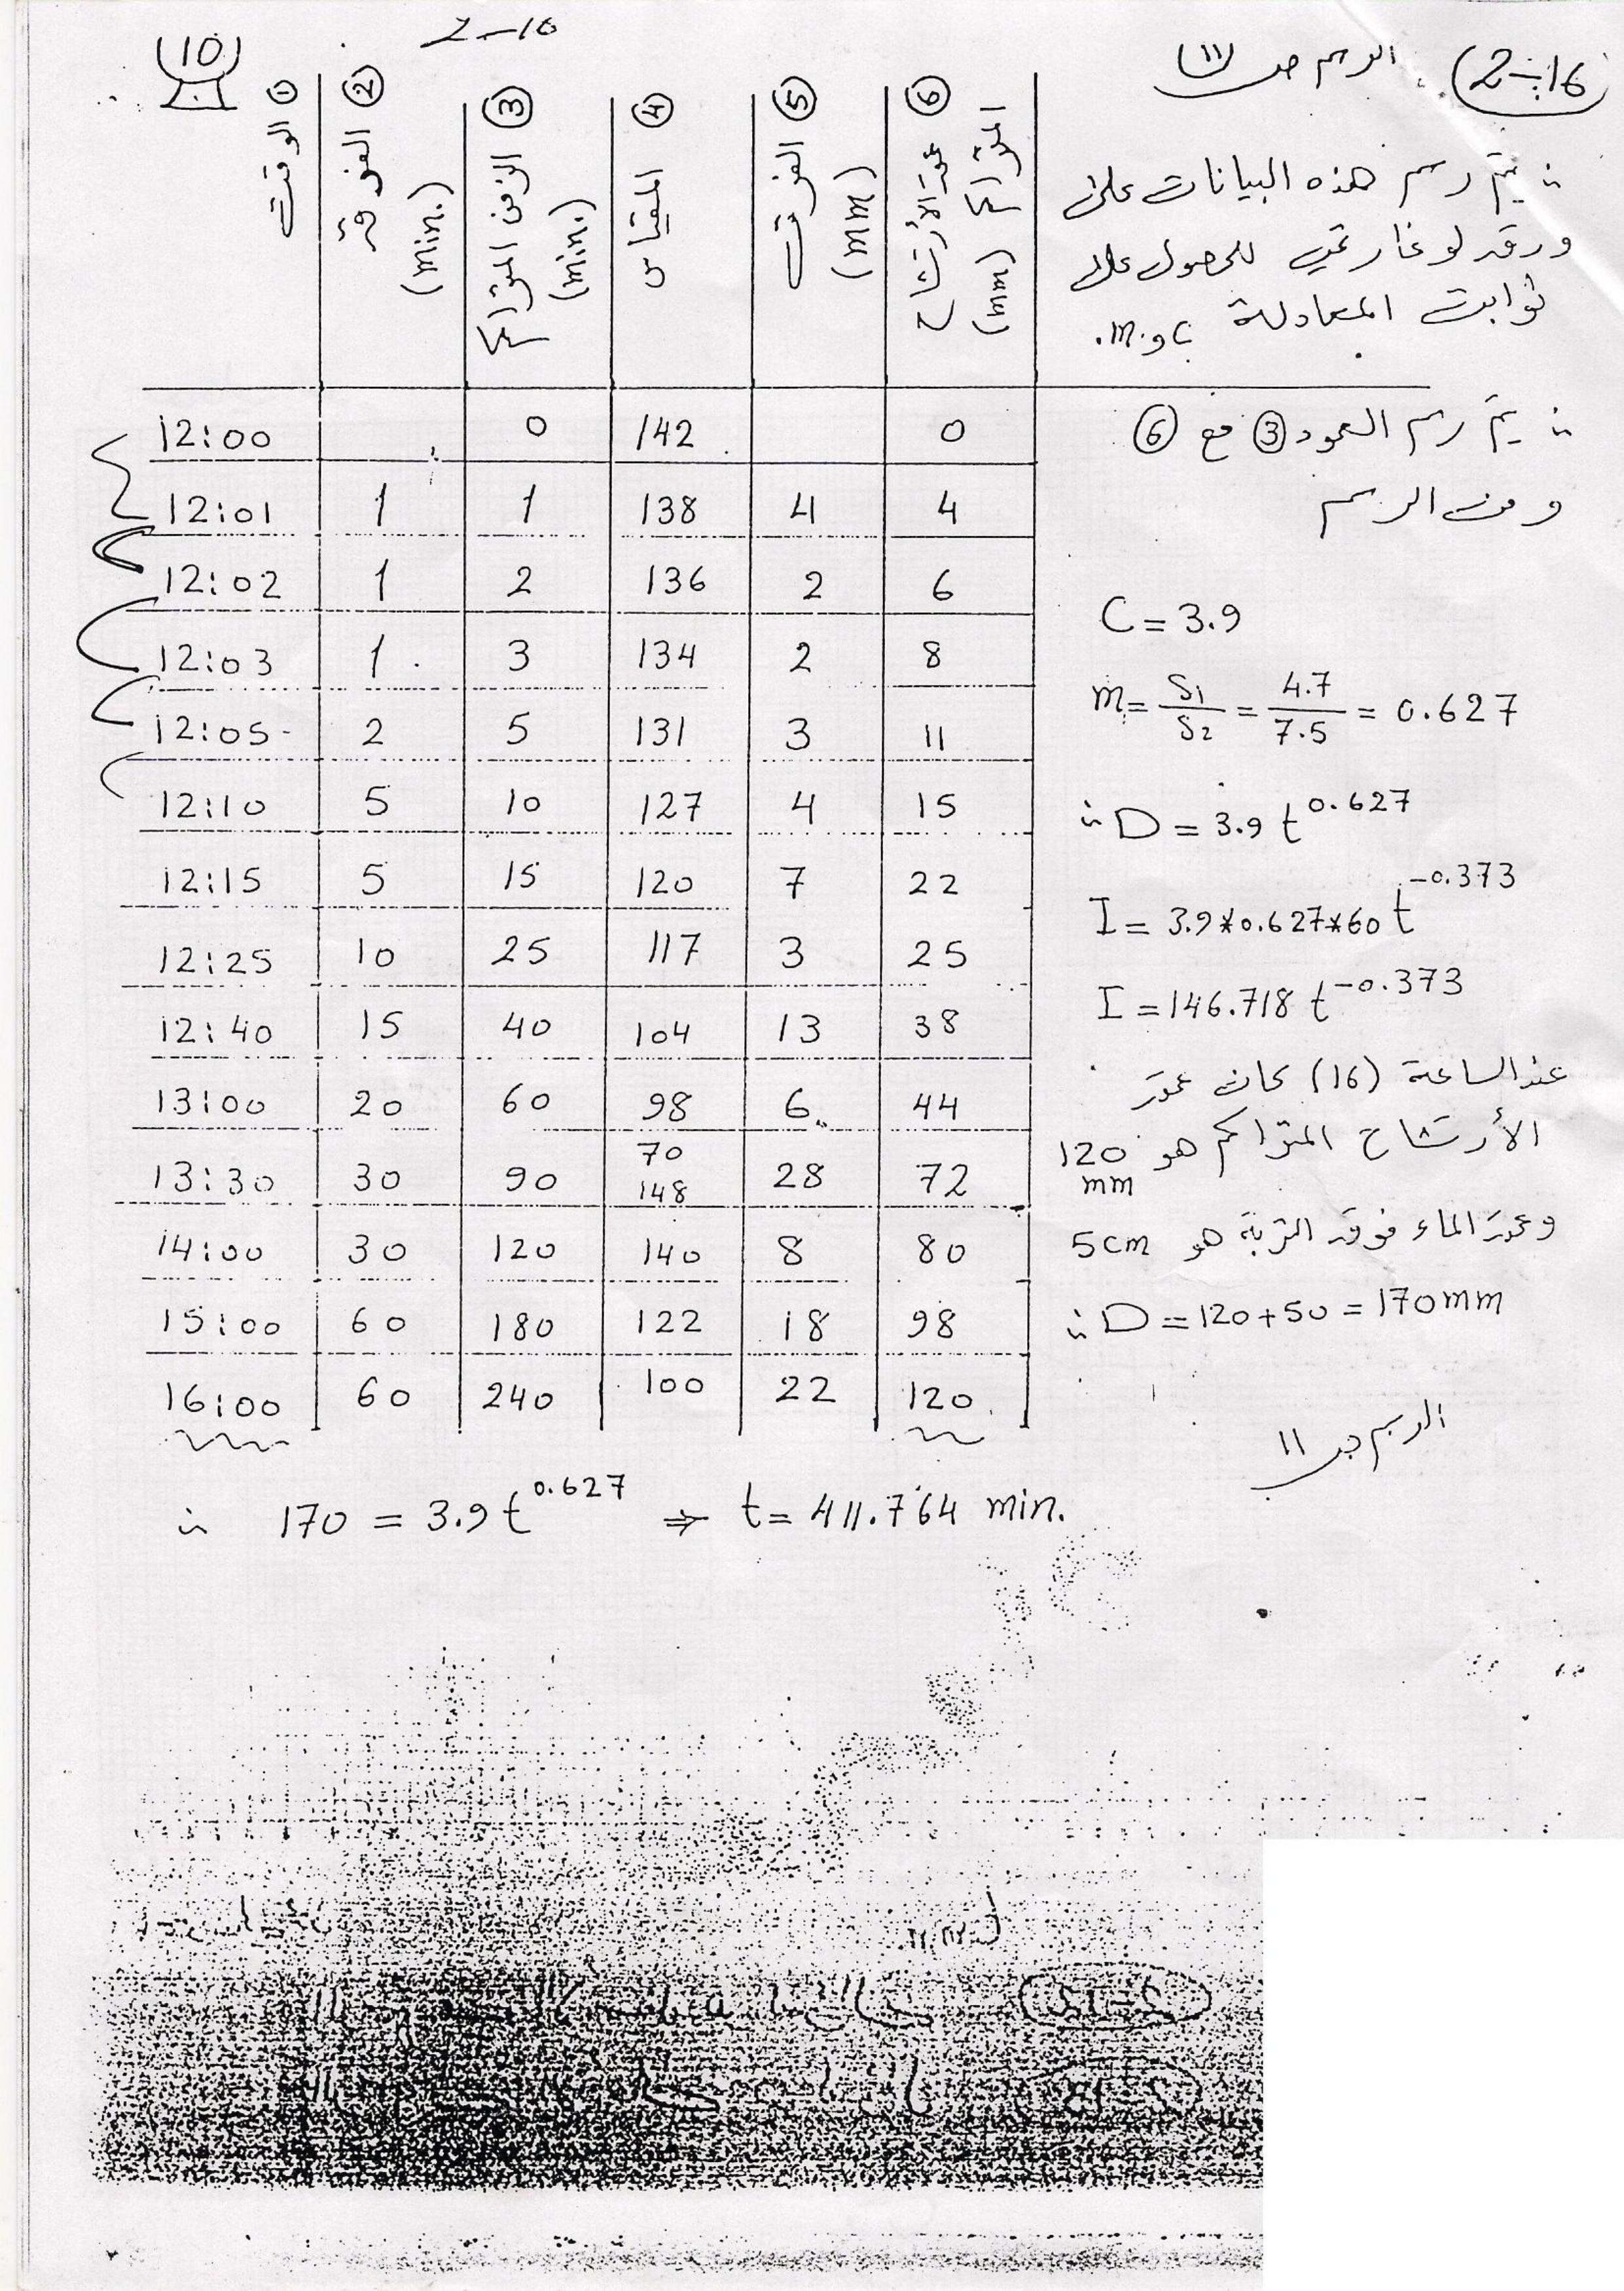 (10)
2-10
2-16 الرسم ص (11)
① الوقت
② الفرق (min.)
③ الزمن المتراكم (min.)
④ المقياس
⑤ الفرق (mm)
⑥ عمق الأرتشاح المتراكم (mm)
∴ يتم رسم هذه البيانات على
ورقة لوغارتمي للحصول على
ثوابت المعادلة C و m.
12:00 0 142 0
12:01 1 1 138 4 4
12:02 1 2 136 2 6
12:03 1 3 134 2 8
12:05 2 5 131 3 11
12:10 5 10 127 4 15
12:15 5 15 120 7 22
12:25 10 25 117 3 25
12:40 15 40 104 13 38
13:00 20 60 98 6 44
13:30 30 90 70 148 28 72
14:00 30 120 140 8 80
15:00 60 180 122 18 98
16:00 60 240 100 22 120
∴ يتم رسم العمود ③ مع ⑥
ومن الرسم
C = 3.9
m = S1/S2 = 4.7/7.5 = 0.627
∴ D = 3.9 t^0.627
I = 3.9*0.627*60 t^-0.373
I = 146.718 t^-0.373
عند الساعة (16) كان عمق
الأرتشاح المتراكم هو 120 mm
وعمق الماء فوق التربة هو 5cm
∴ D = 120+50 = 170mm
الرسم ص 11
∴ 170 = 3.9 t^0.627 ⇒ t = 411.764 min.